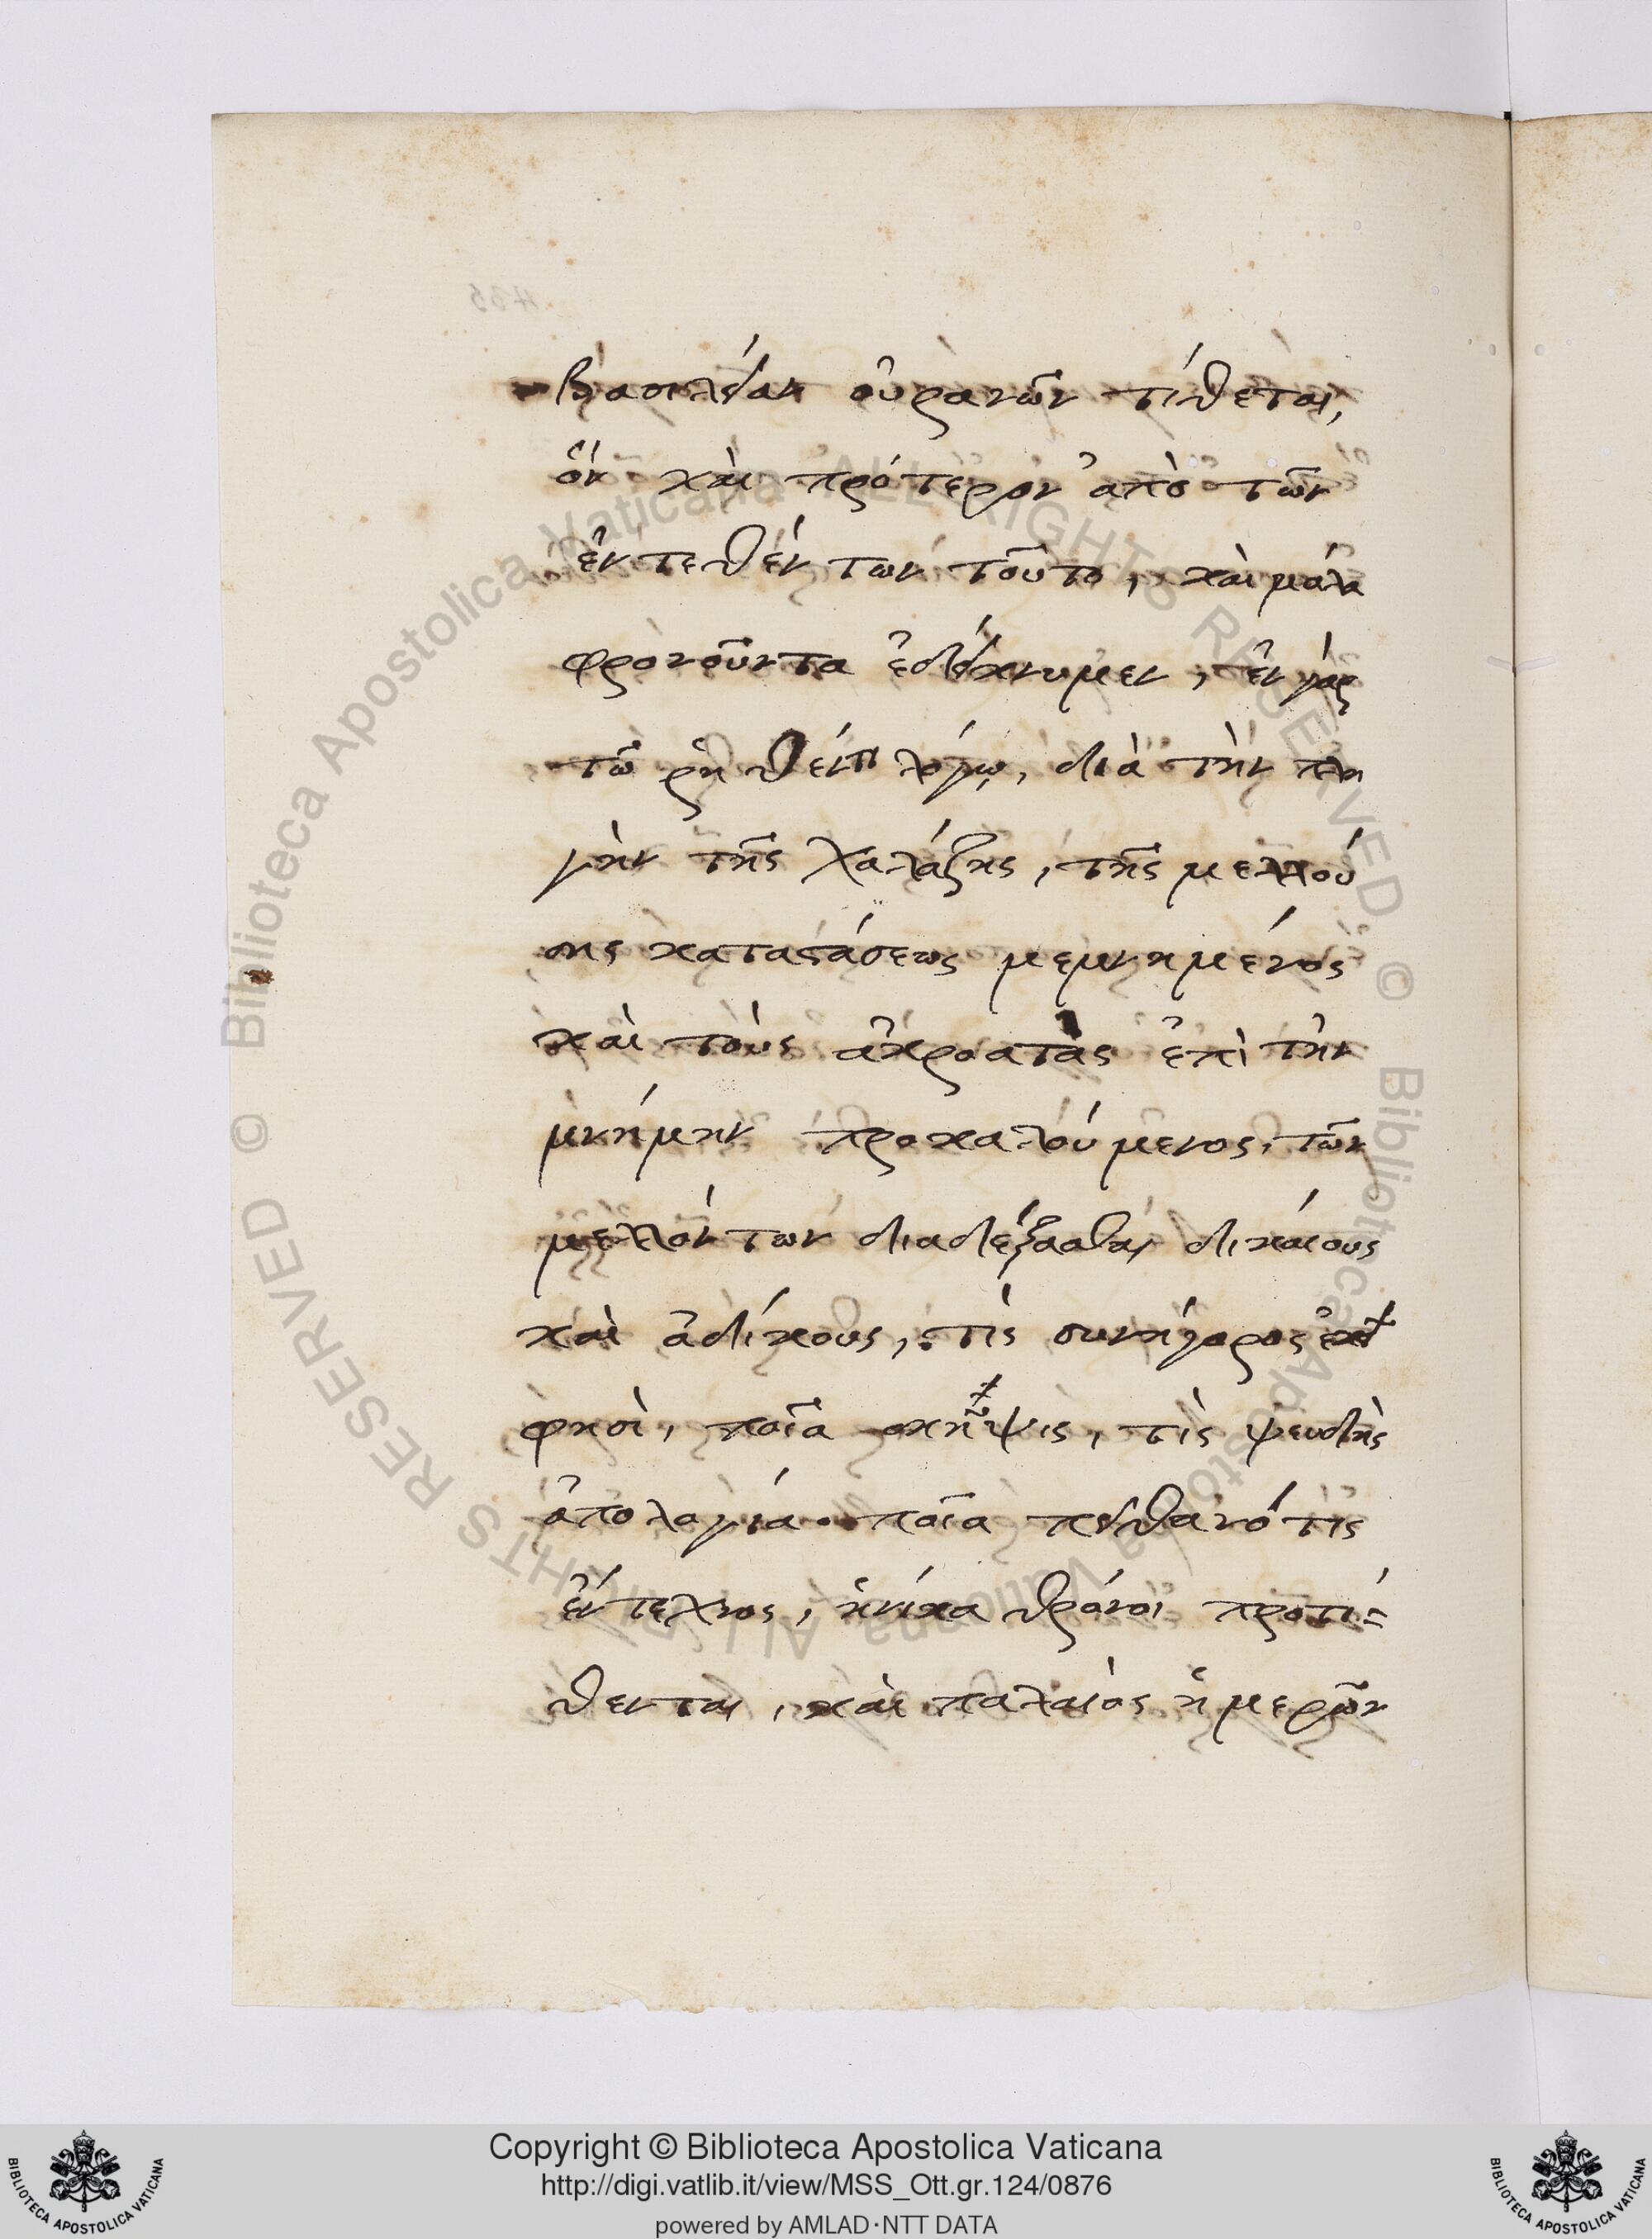 βασιλείαν οὐρανῶν τίθεται,
ὃν καὶ πρότερον ἀπὸ τῶν
ἐντεθέντων τοῦτο, καὶ μάλα
φρονοῦντα ἐδείκνυμεν, ἐν γὰρ
τῶ ῥηθέντι λόγῳ, διὰ τὴν πλη
γὴν τῆς χαλάζης, τῆς μελλού
σης καταστάσεως μεμνημένος
καὶ τοὺς ἀκροατὰς ἐπὶ τὴν
μνήμην προκαλούμενος, τῶν
μελλόντων διαδέξασθαι δικαίους
καὶ ἀδίκους, τίς συνήγορος ἐκεῖ
φησὶ, ποῖα σκῆψις, τίς ψευδὴς
ἀπολογία. ποῖα πειθανότις
ἔντεχνος, ἡνίκα θρόνοι προτί=
θενται, καὶ παλαιὸς ἡμερῶν
Copyright © Biblioteca Apostolica Vaticana
http://digi.vatlib.it/view/MSS_Ott.gr.124/0876
powered by AMLAD·NTT DATA
Biblioteca Apostolica Vaticana ALL RIGHTS RESERVED ©
BIBLIOTECA APOSTOLICA VATICANA
BIBLIOTECA APOSTOLICA VATICANA